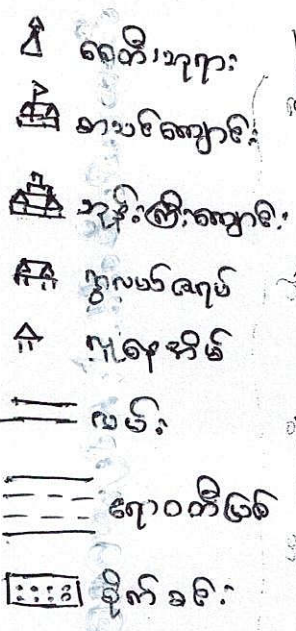 စေတီ၊ဘုရား
စာသင်ကျောင်း
ဘုန်းကြီးကျောင်း
လူနေအိမ်
လမ်း
ဧရာဝတီမြစ်
စိုက်ခင်း